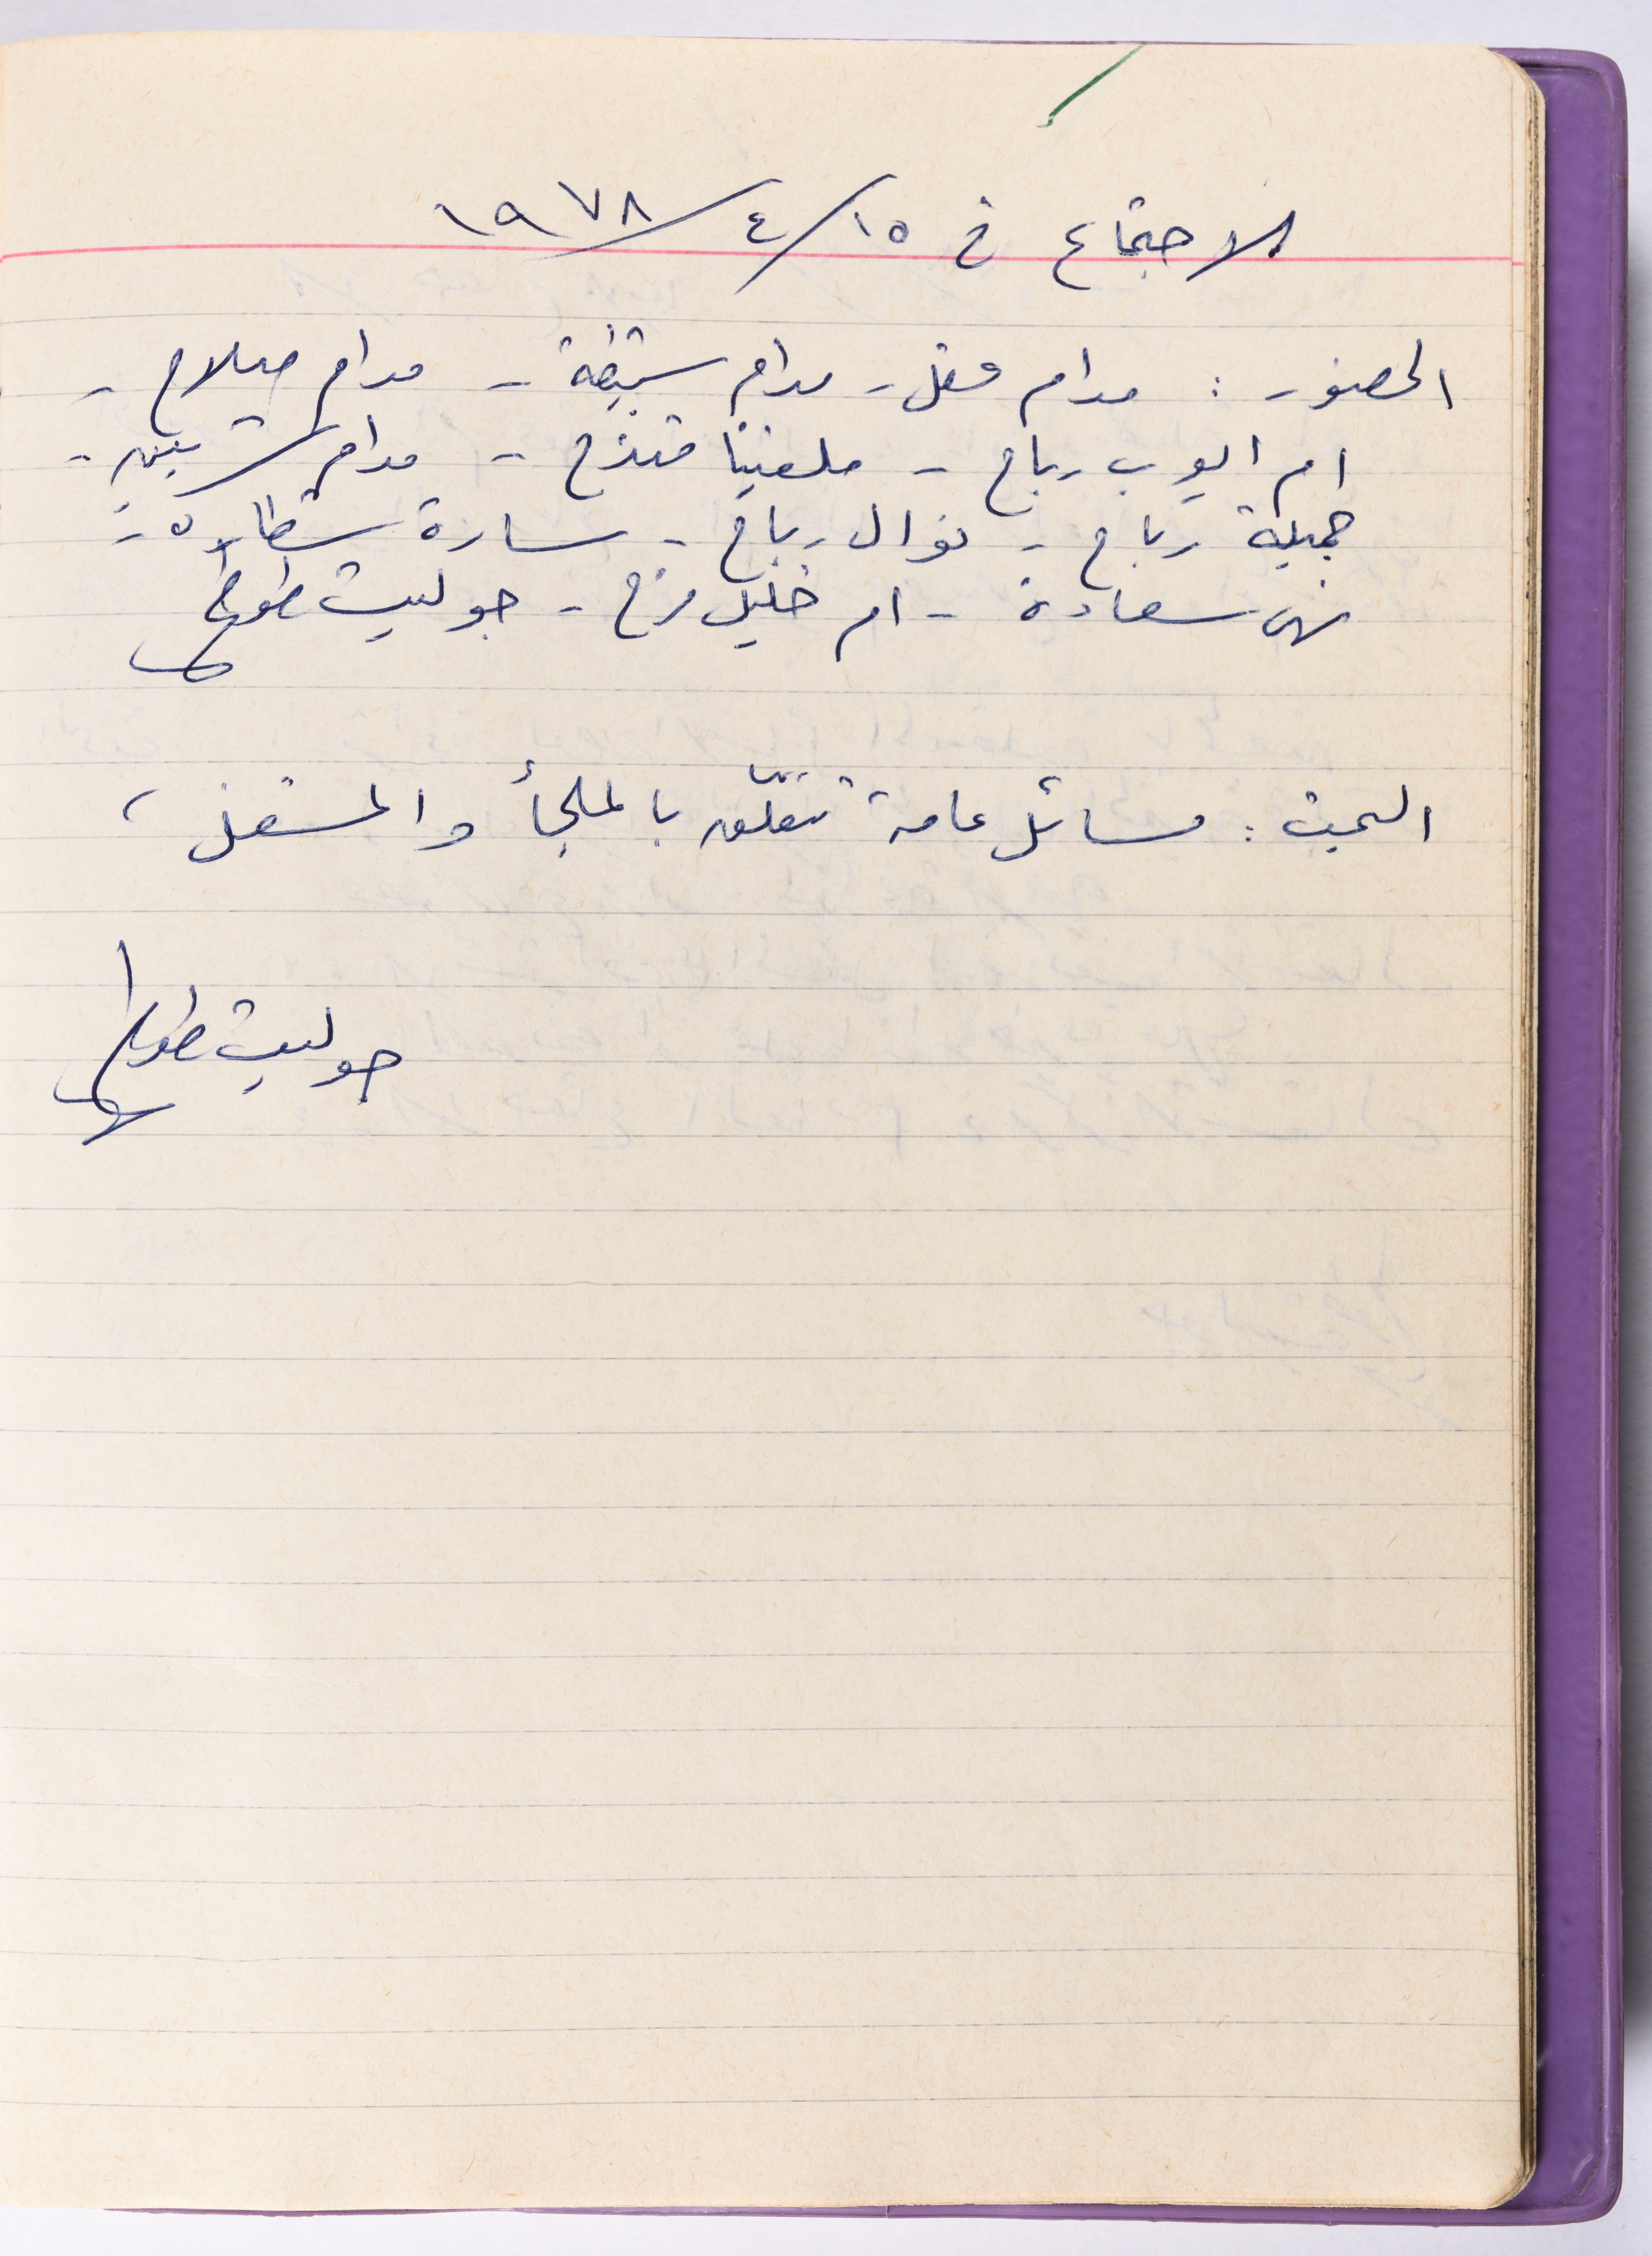 الاجتماع في ١٥/٤/١٩٧٨
الحضور : مدام عقل - مدام - مدام صلاح -
ام ايوب رباح - ملفينا قندح - مدام -
جميلة رباح - نوال رباح - سارة شطارة -
نهى سعادة - ام خليل فرح - جولييت طوطح
البحث : مسائل عامة تتعلّق بالملجأ والمشغل ،
جولييت طوطح